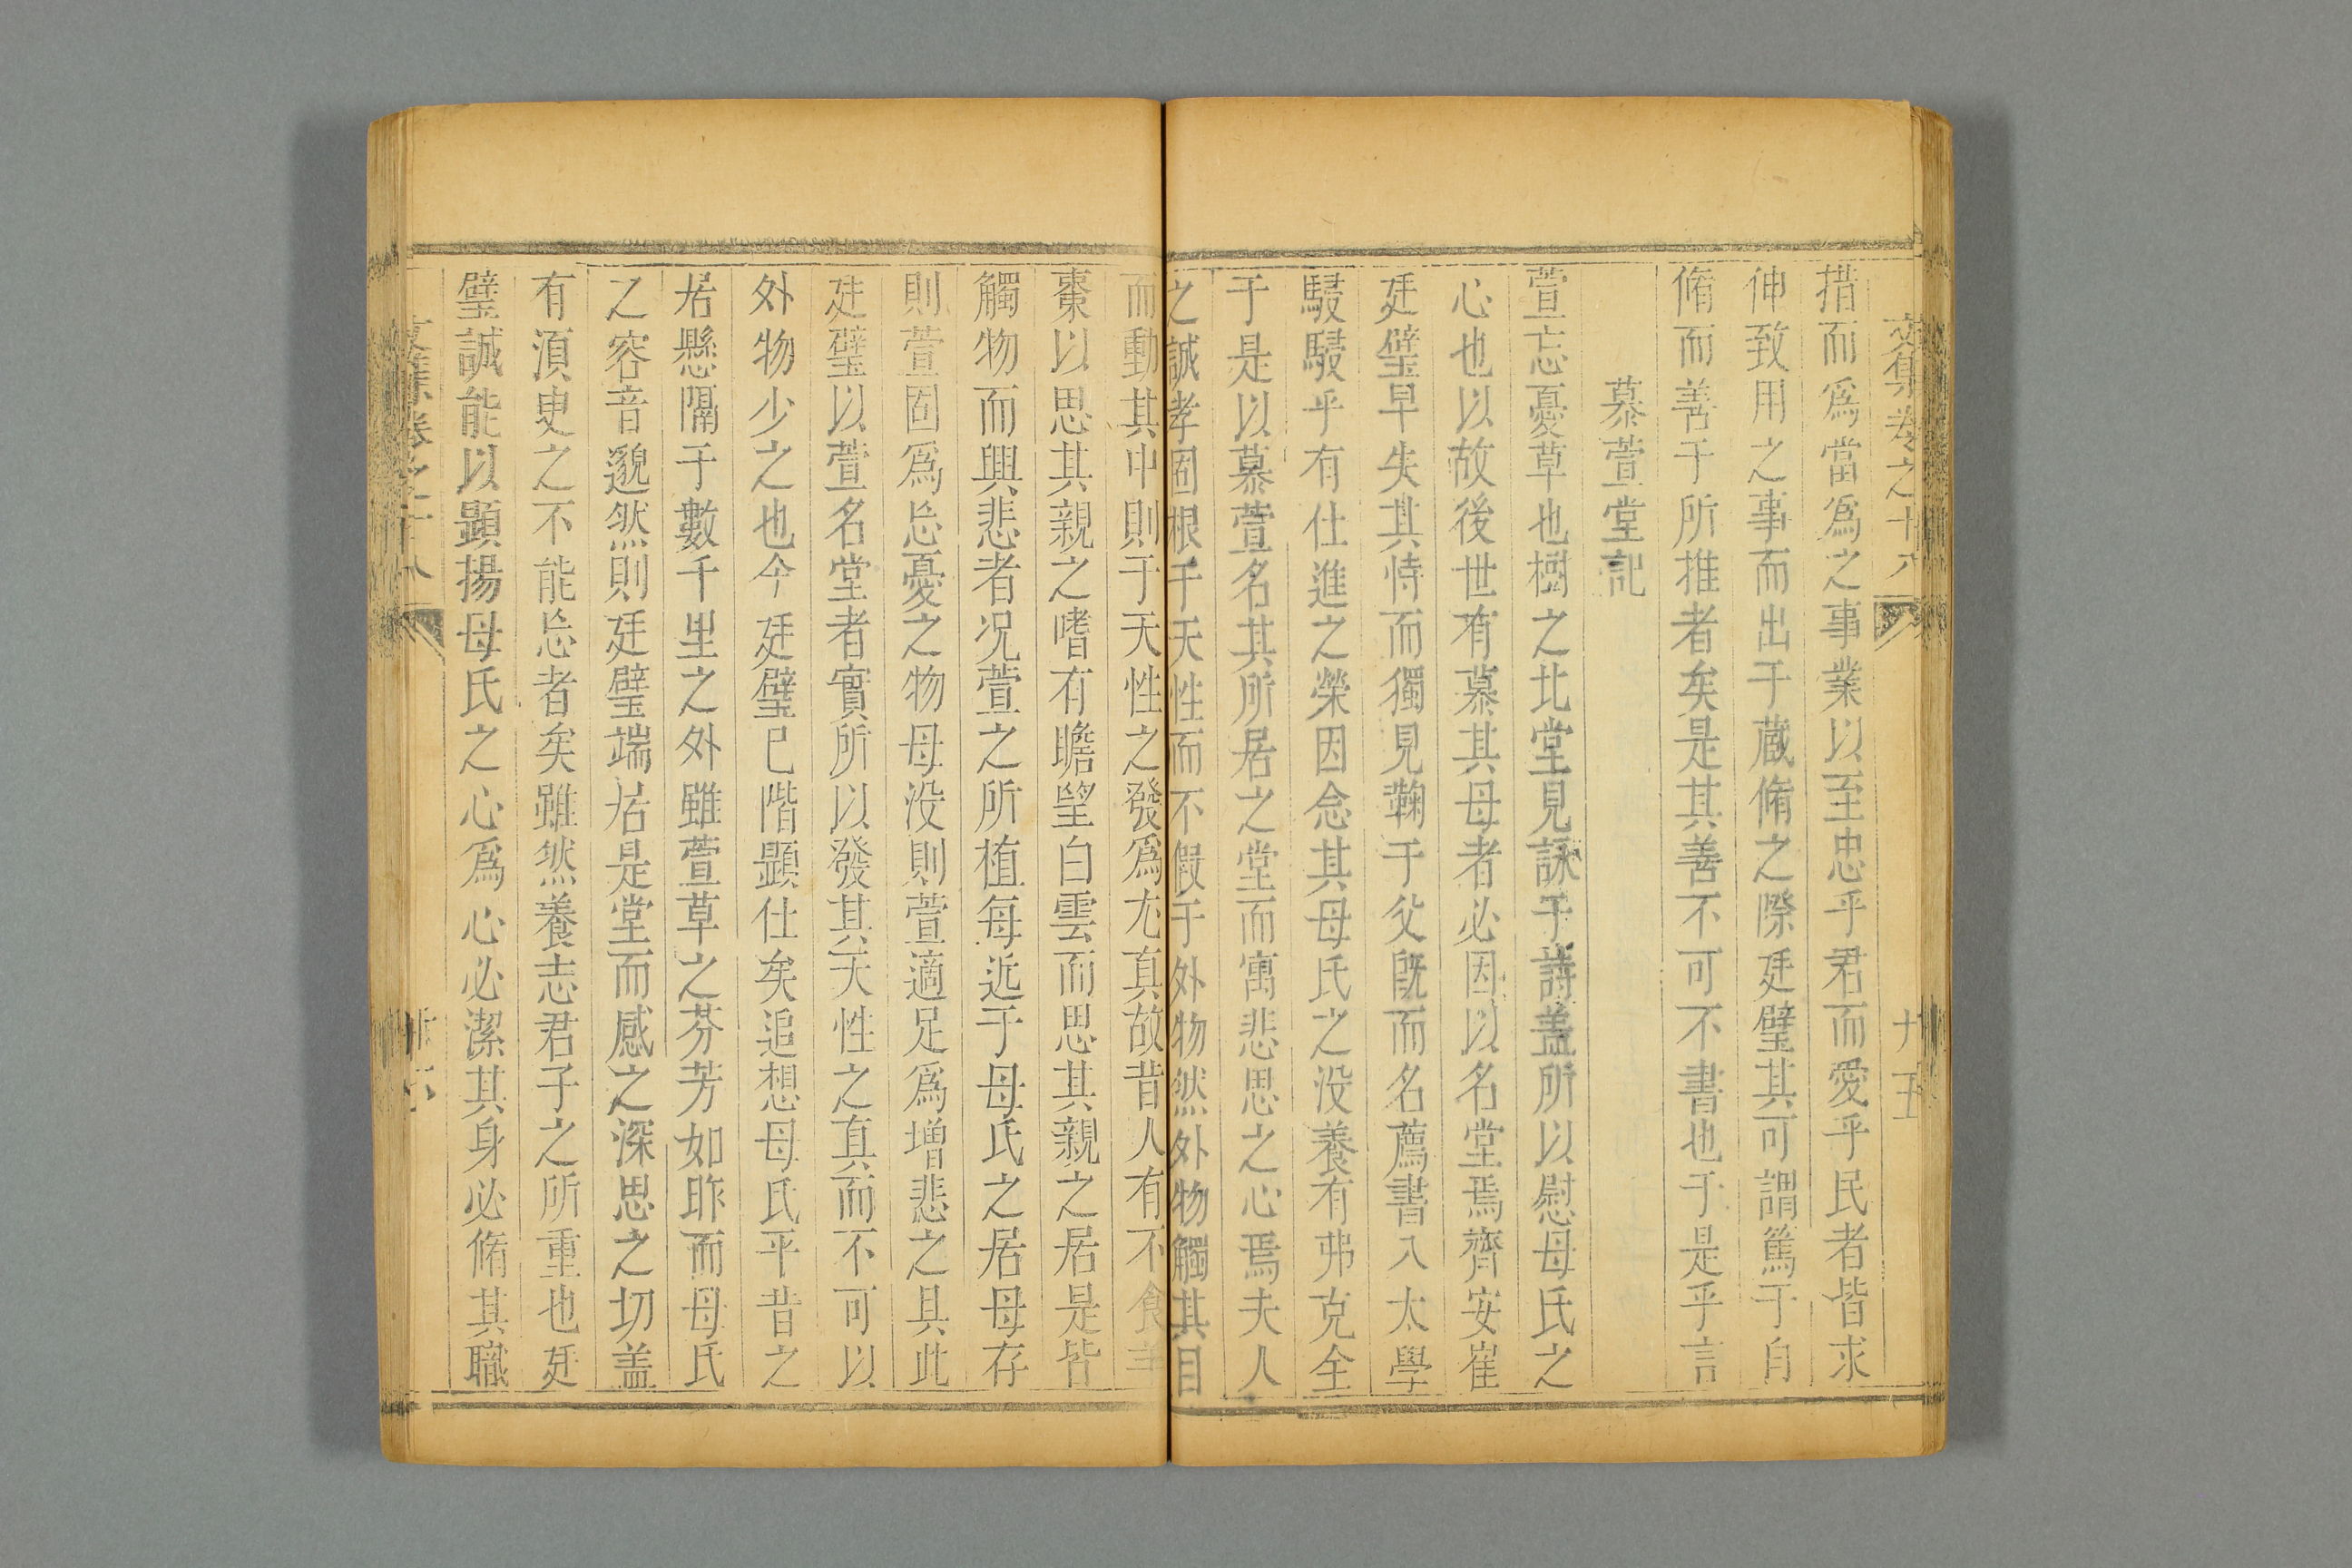 文集卷之十八
廿五
措而爲當爲之事業以至忠乎君而愛乎民者皆求
伸致用之事而出于蔵脩之際廷璧其可謂篤于自
脩而善于所推者矣是其善不可不書也于是乎言
慕萱堂記
萱忘憂草也樹之北堂見詠于詩盖所以慰母氏之
心也以故後世有慕其母者必因以名堂焉齊安崔
廷璧早失其恃而獨見鞠于父既而名薦書入太學
駸駸乎有仕進之榮因念其母氏之没養有弗克全
于是以慕萱名其所居之堂而寓悲思之心焉夫人
之誠孝固根于天性而不假于外物然外物觸其目
而動其中則于天性之發爲尤真故昔人有不食羊
棗以思其親之嗜有瞻望白雲而思其親之居是皆
觸物而興悲者况萱之所植每近于母氏之居母存
則萱固爲忘憂之物母没則萱適足爲增悲之具此
廷璧以萱名堂者實所以發其天性之真而不可以
外物少之也今廷璧已階顯仕矣追想母氏平昔之
居懸隔于數千里之外雖萱草之芬芳如昨而母氏
之容音邈然則廷璧端居是堂而感之深思之切盖
有湏叟之不能忘者矣雖然養志君子之所重也廷
璧誠能以顯揚母氏之心爲心必潔其身必脩其職
文集卷之十八
廿六